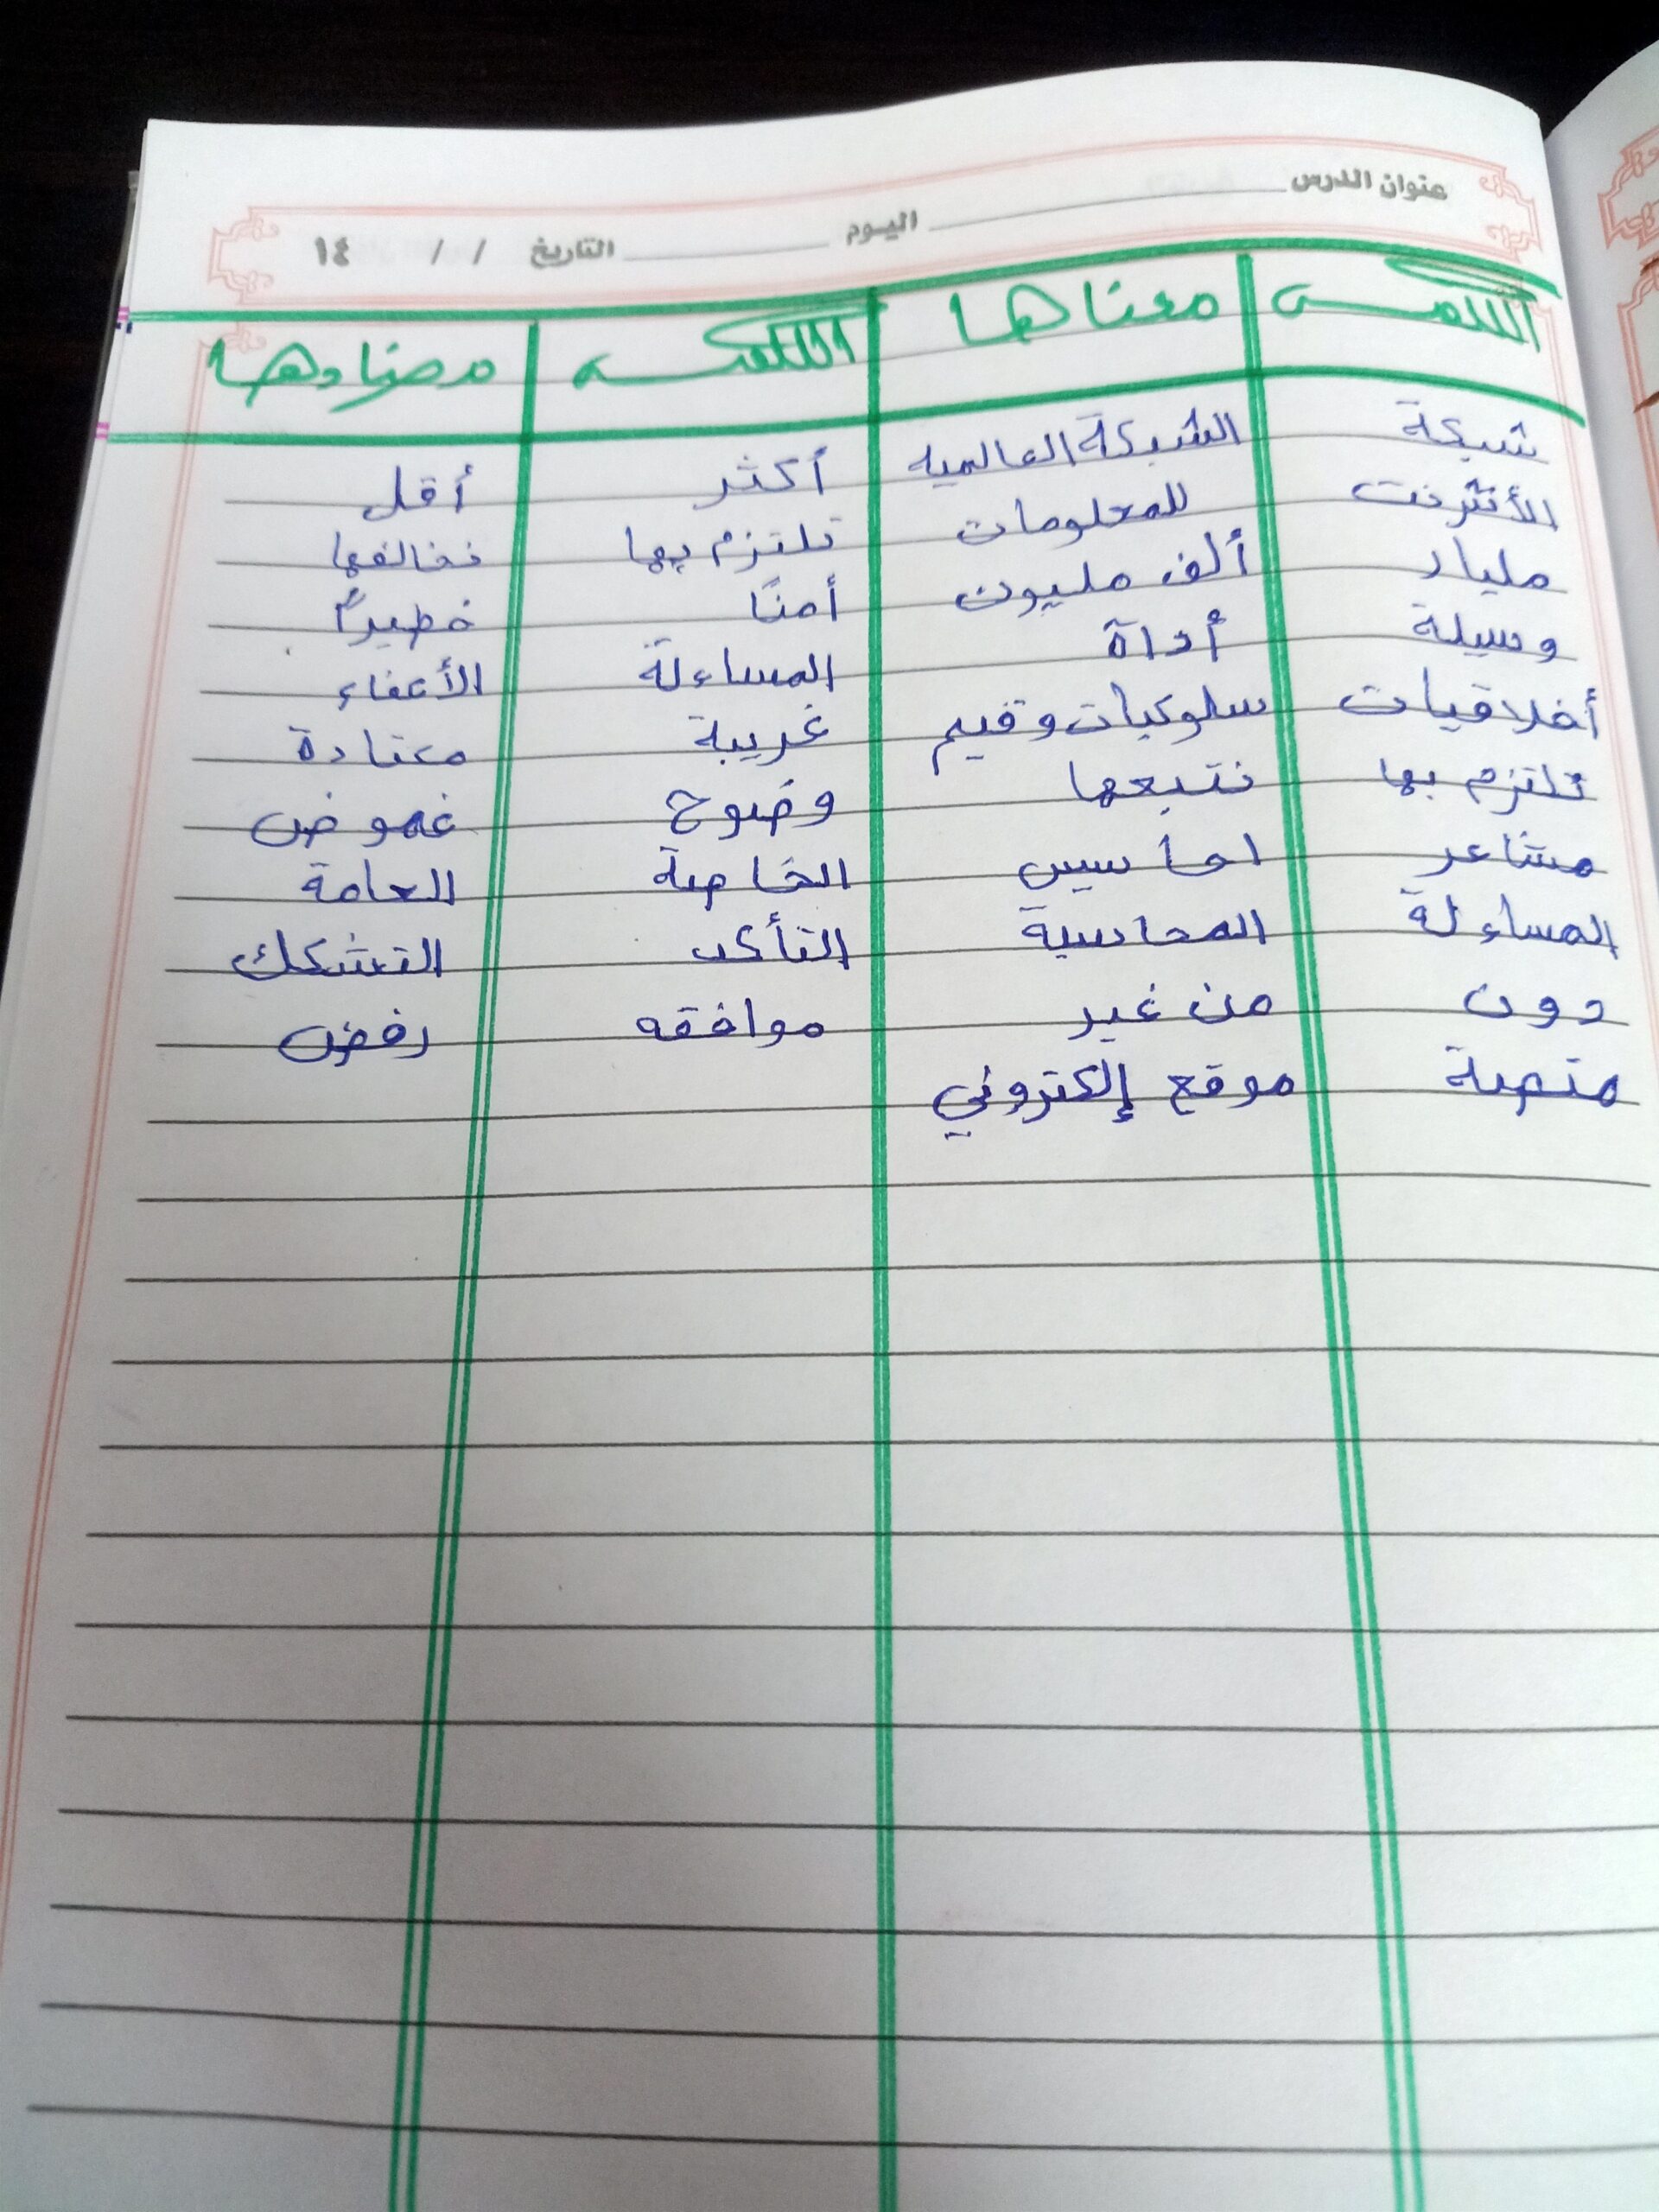 عنوان الدرس اليوم التاريخ / / ١٤
الكلمه معناها الكلمه مضادها
شبكة الشبكة العالميه أكثر أقل
الأنترنت للمعلومات نلتزم بها نخالفها
مليار ألف مليون أمنًا خطيرًا
وسيلة أداة المساءلة الأعفاء
أخلاقيات سلوكيات وقيم غريبة معتادة
نلتزم بها نتبعها وضوح غموض
مشاعر احاسيس الخاصة العامة
المساءلة المحاسبة التأكد التشكك
دون من غير موافقه رفض
منصة موقع إلكتروني